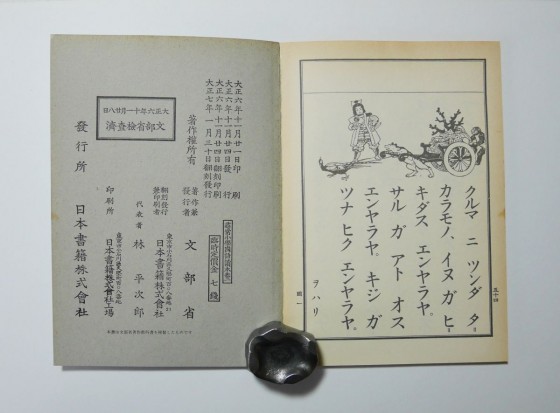 五十四
クルマ ニ ツンダ タ
カラモノ、イヌ ガ ヒ
キダス エンヤラヤ。
サル ガ アト オス
エンヤラヤ。キジ ガ
ツナ ヒク エンヤラヤ。
ヲハリ
大正六年十一月廿一日印刷
大正六年十一月廿四日發行
大正六年十一月廿四日翻刻印刷
大正七年一月三十日翻刻發行
著作權所有
尋常小學國語讀本卷一
臨時定價金七錢
著作兼發行者 文部省
翻刻發行兼印刷者
日本書籍株式會社
代表者 林平次郎
印刷所
日本書籍株式會社工場
大正六年十一月廿八日
文部省檢查濟
發行所 日本書籍株式會社